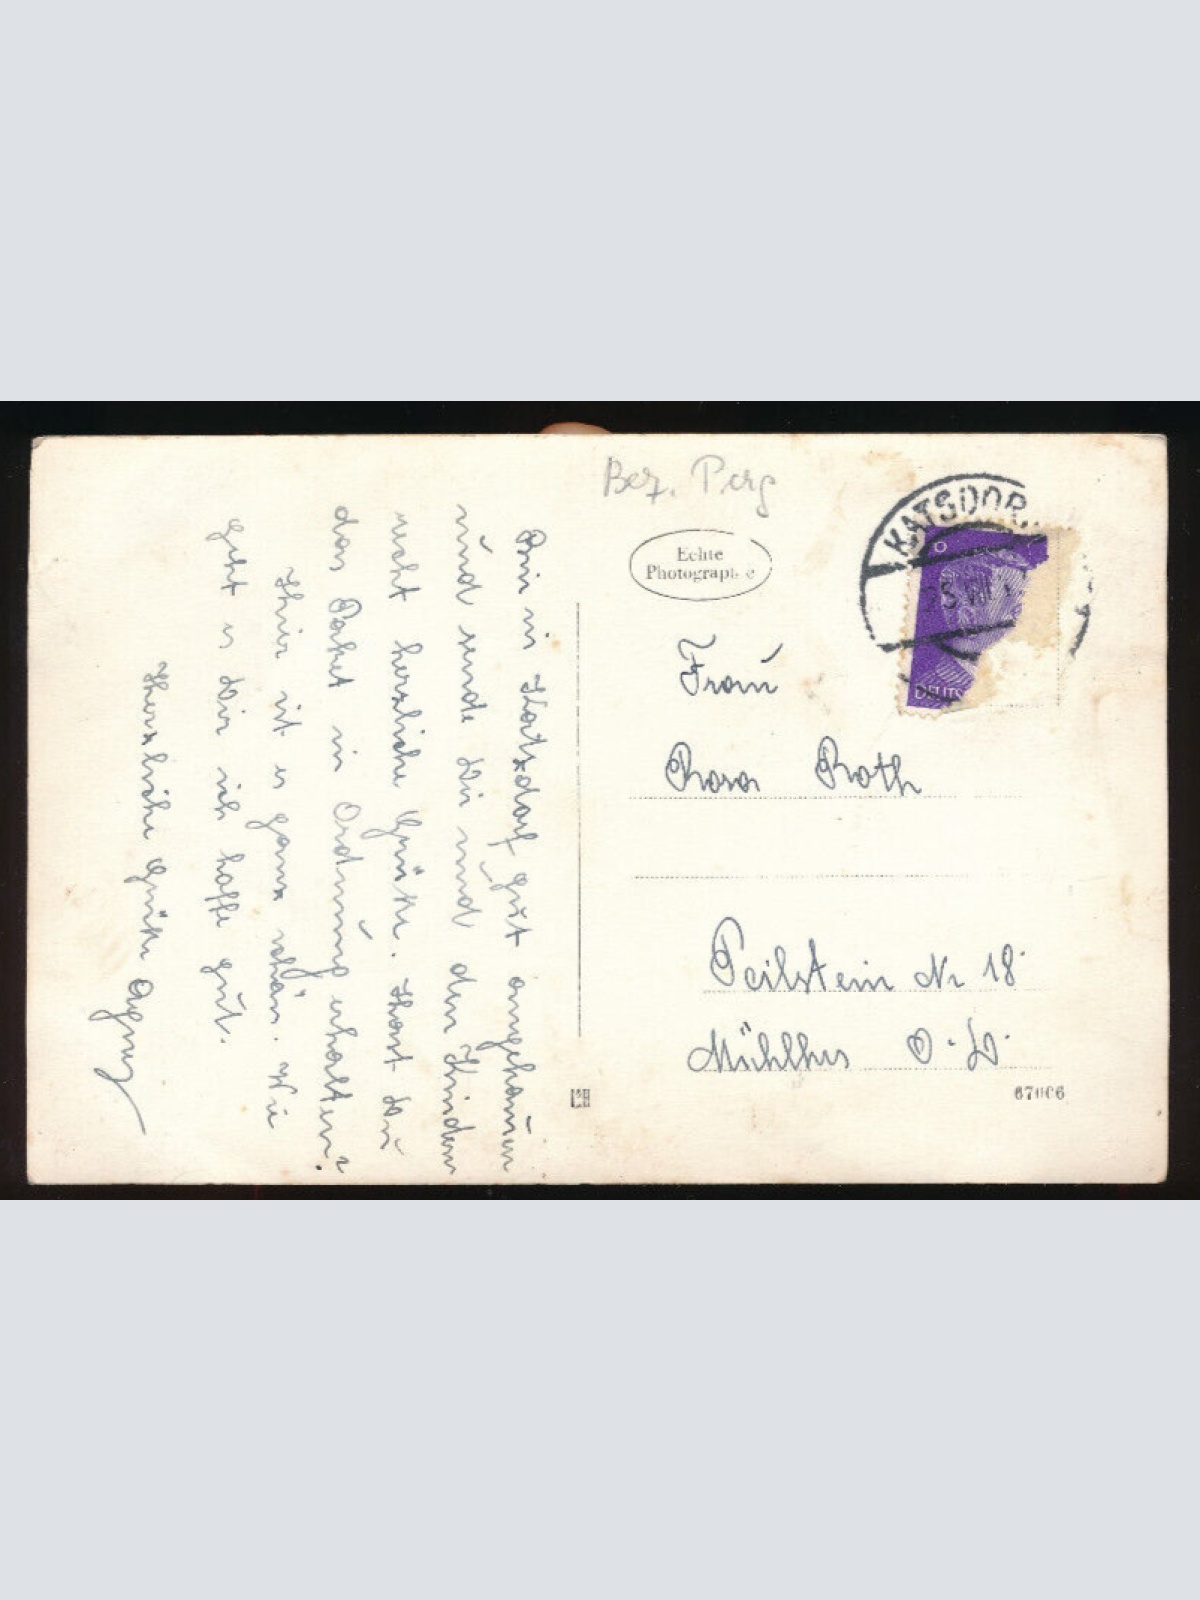 Bez. Perg
Echte
Photographie
KATSDOR
25 VIII
DEUTS
Frau
Rosa Roth
Peilstein Nr 18
Mühlkrs O. D.
67006
Bin in Katzdorf gut angekommen
und sende Dir und den Kindern
recht herzliche Grüße. Hast Du
das Paket in Ordnung erhalten?
Hier ist es ganz schön. Wie
geht es Dir ich hoffe gut.
Herzliche Grüße Agnes